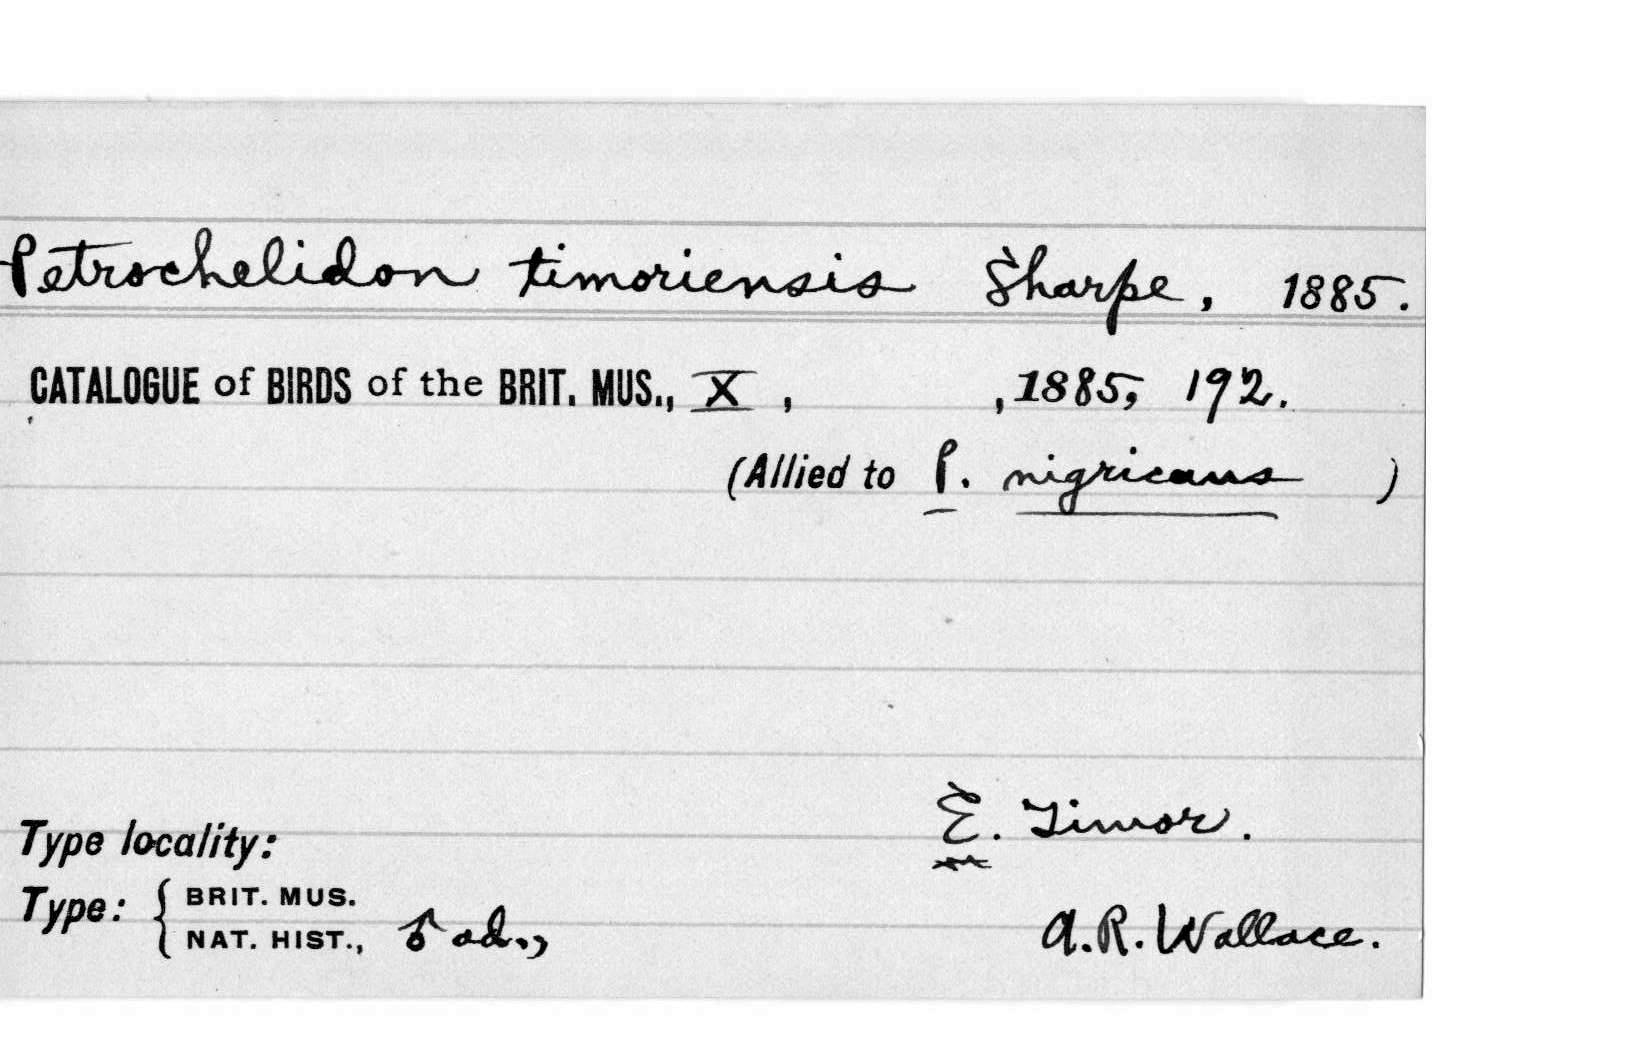 Petrochelidon timoriensis Sharpe, 1885.
CATALOGUE of BIRDS of the BRIT. MUS., X , , 1885, 192.
(Allied to P. nigricans )
Type locality: E. Timor.
Type: { BRIT. MUS. NAT. HIST., ♂ ad., A.R. Wallace.